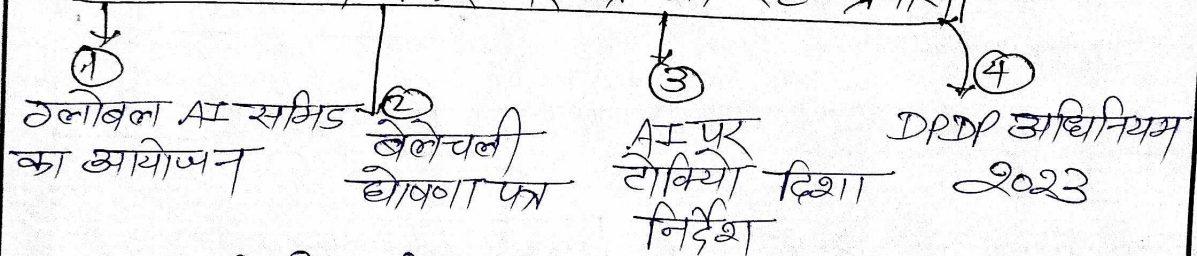 ① ② ③ ④
ग्लोबल AI समिड
का आयोजन
बेलेचली
घोषणा पत्र
AI पर
टोकियो दिशा
निर्देश
DPDP अधिनियम
2023